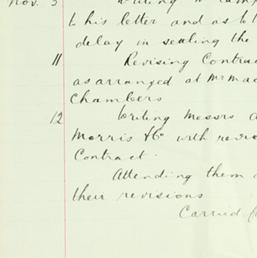 Nov. 5 Writing
to his letter and as to
delay in settling the
11 Revising Contra
as arranged at Mr Mac
Chambers
12 Writing Messrs A
Morris & Co with revis
Contract.
Attending them
their revisions
Carried